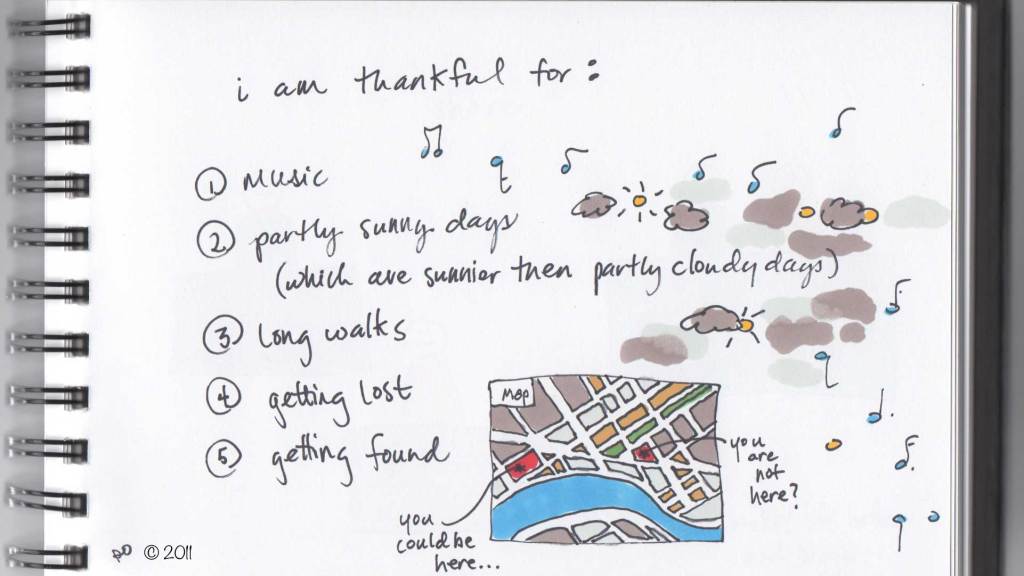 i am thankful for:
① music
② partly sunny days
(which are sunnier then partly cloudy days)
③ long walks
④ getting lost
⑤ getting found
map
you
are
not
here?
you
could be
here...
© 2011